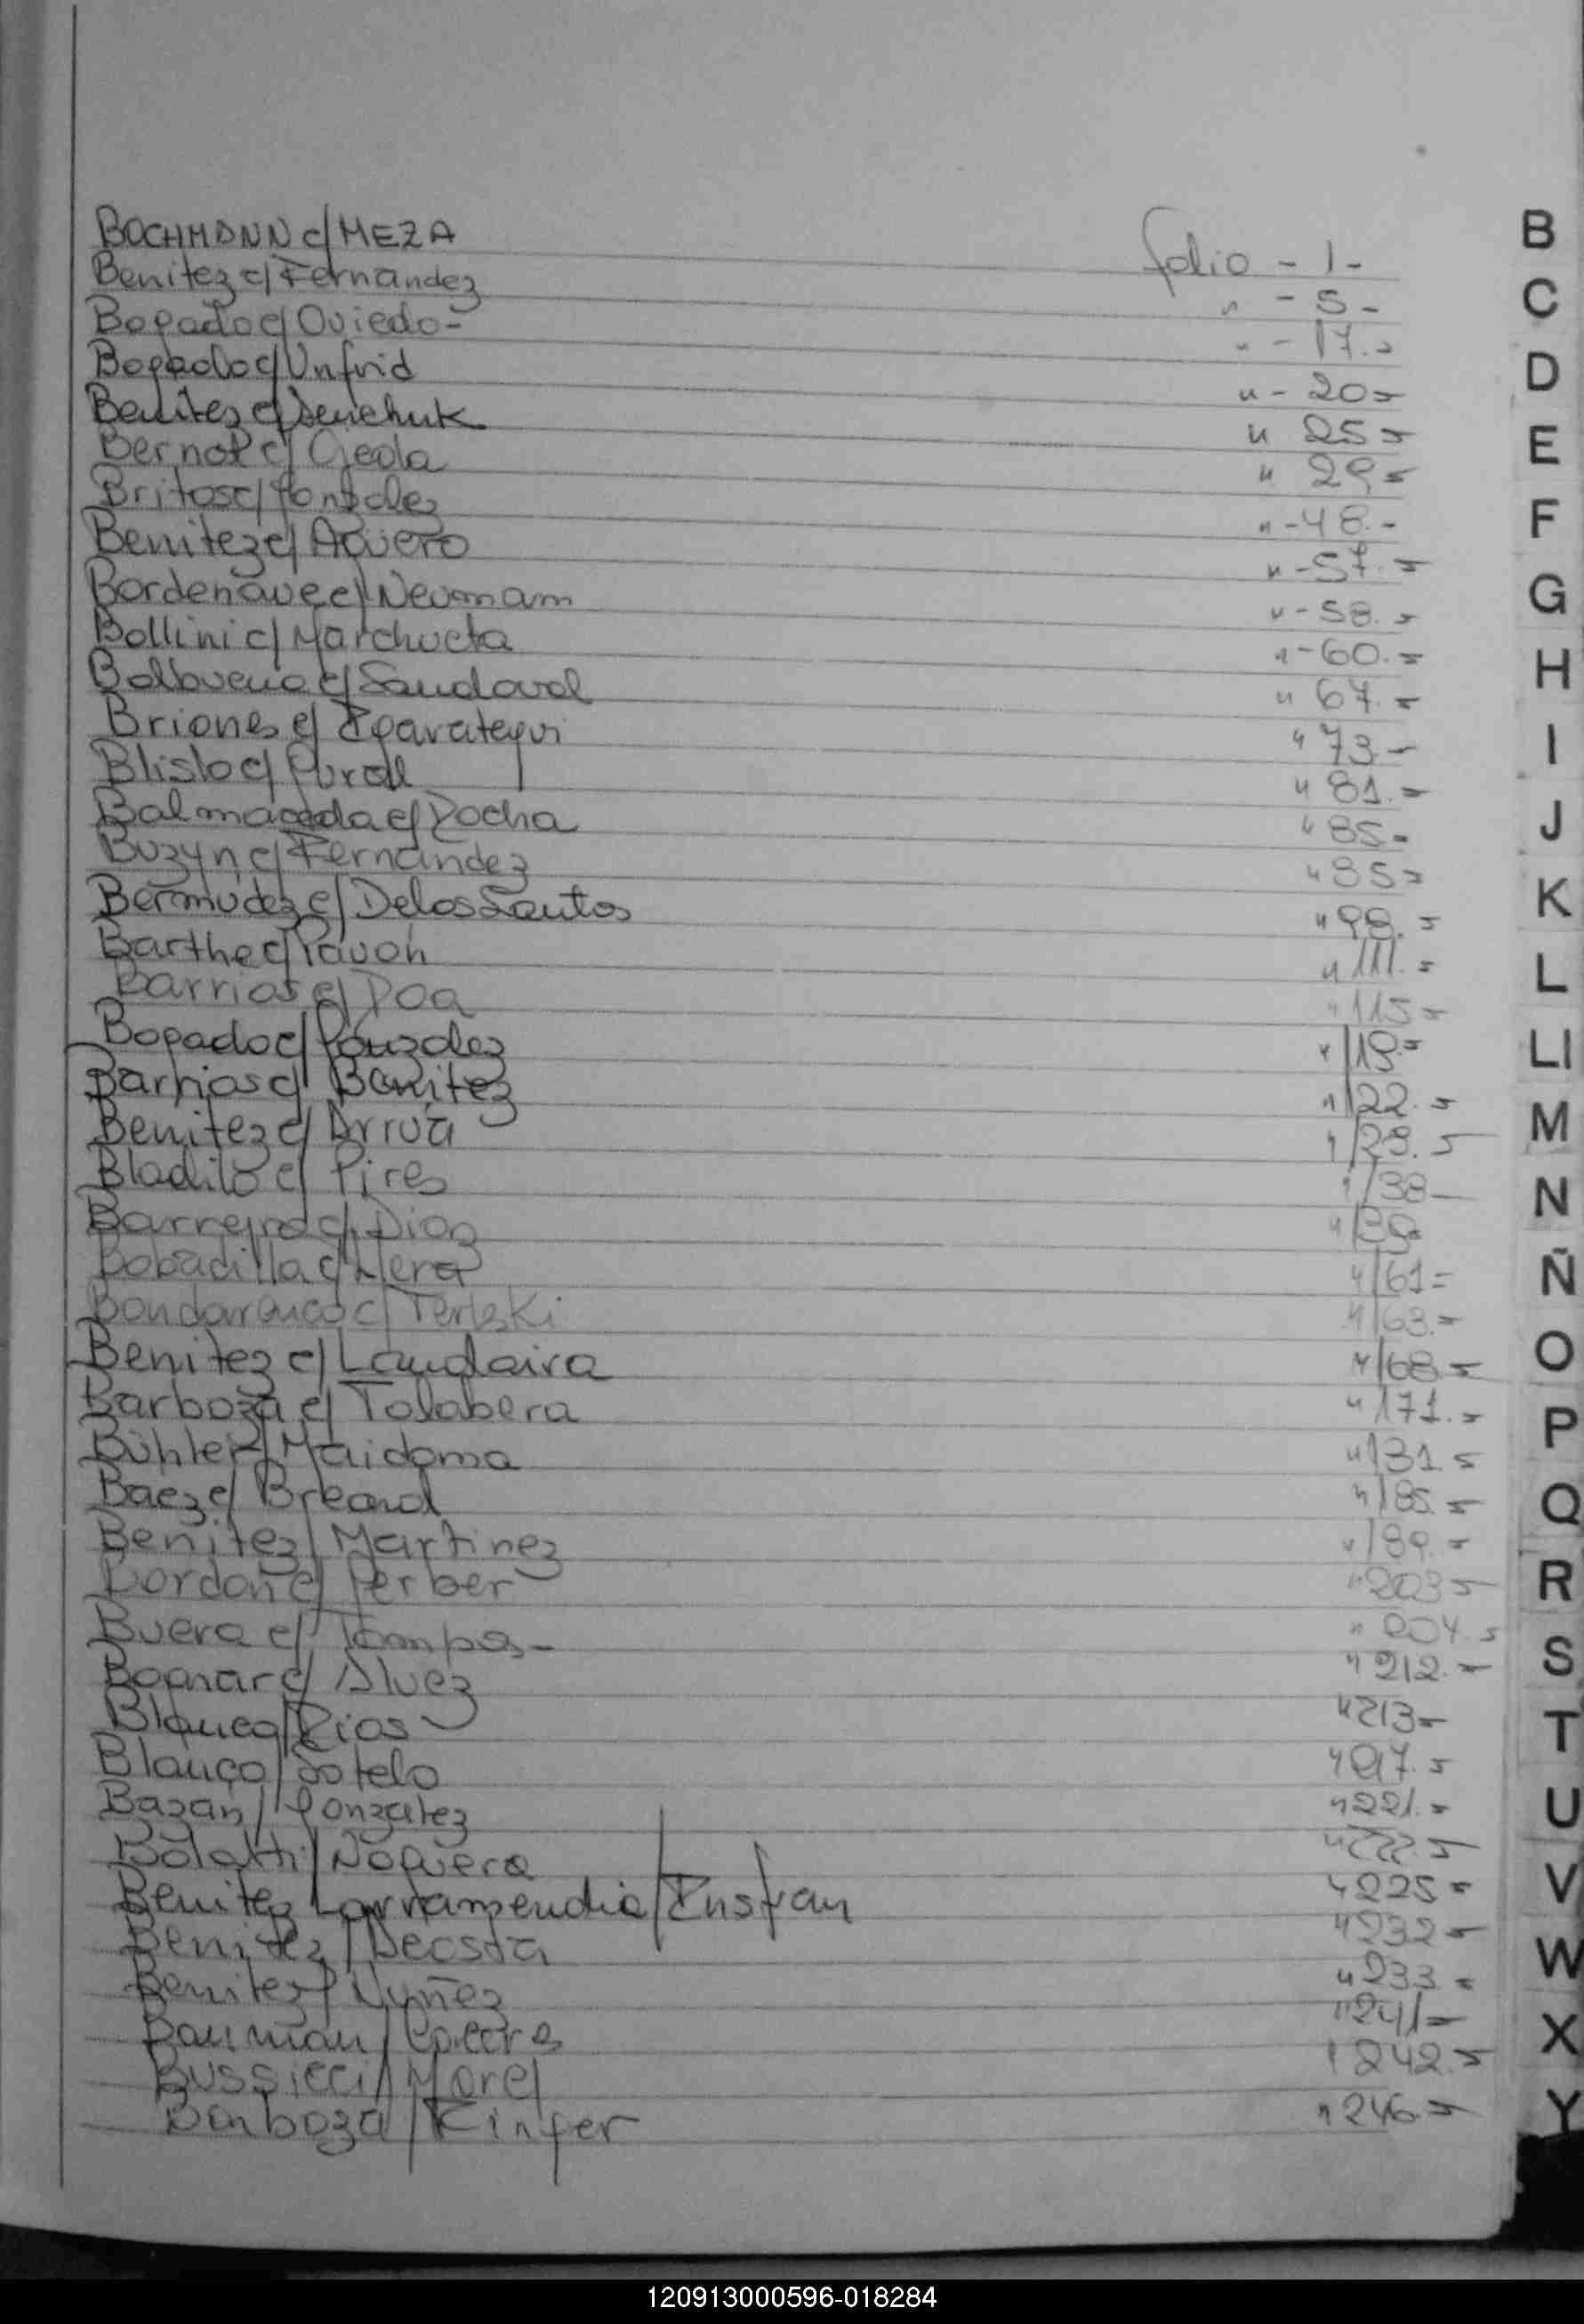 BOCHMANN c/ MEZA folio - 1 - B
Benitez c/ Fernandez " - 5 - C
Bogado c/ Oviedo - " - 17.=
Bogado c/ Unfrid " - 20= D
Benitez c/ " 25=
Bernot c/ Ojeda " 29= E
Britos c/ " - 48.-
Benitez c/ Aguero " - 57.= F
Bordenave c/ Neumann " - 58.= G
Bollini c/ Marchueta " - 60.=
Balbuena c/ Sandoval " 67.= H
Briones c/ Eparategui " 73.- I
c/ " 81.=
Balmaceda c/ Rocha " 85= J
Buzyn c/ Fernandez "
Bermudez c/ De los Santos " 98.= K
Barthe c/ Pavon " 111.= L
Barrios c/ Roa " 115=
Bogado c/ Gonzalez " 119= Ll
Barrios c/ Benitez " 122.=
Benitez c/ Arrua " M
Bladilo c/ Pires " 138 N
Barreiro c/ Diaz " 139
Bobadilla c/ Mera " 161= Ñ
c/ Terleski " 163.=
Benitez c/ Landaira " 168.= O
Barboza c/ Tolabera " 171.= P
Bühler / Maidana "
Baez c/ Breard " 185.= Q
Benitez / Martinez " 189.=
Bordon c/ Gerber " 203= R
Buera c/ " 204.= S
Bognar c/ Alvez " 212.=
Blanco / Rios " 213= T
Blanco / Sotelo " 217.=
Bazan / Gonzalez " 221.= U
Bolatti / Noguera " 222.=
Benitez Larramendia / Insfran " 225= V
Benitez / Decosta " 232= W
Benitez / Nuñez " 233.=
Bauman / " 241= X
Bussicci / Morel " 242.=
Barboza / Kinfer " 246.= Y
120913000596-018284